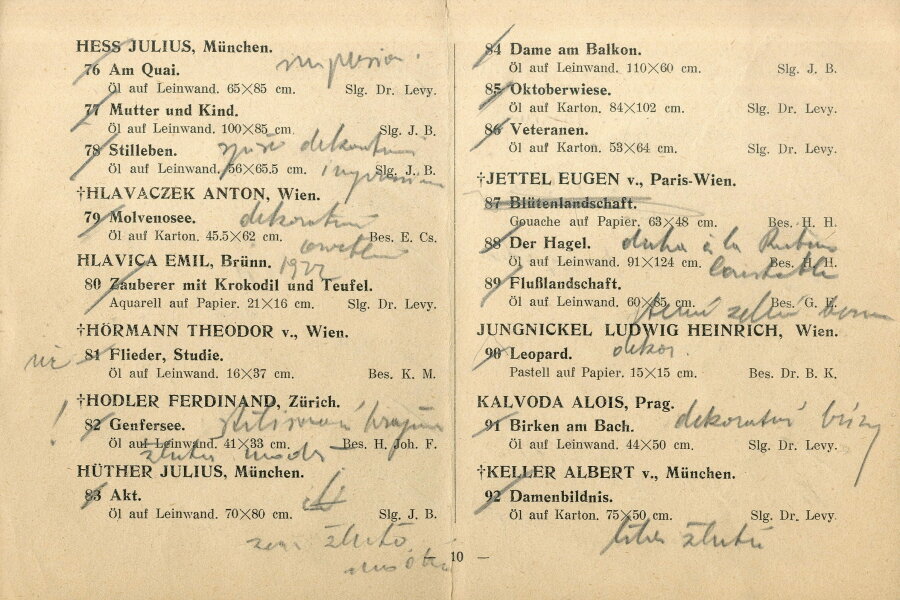 HESS JULIUS, München.
76 Am Quai.
Öl auf Leinwand. 65×85 cm. Slg. Dr. Levy.
77 Mutter und Kind.
Öl auf Leinwand. 100×85 cm. Slg. J. B.
78 Stilleben.
Öl auf Leinwand. 56×65.5 cm. Slg. J. B.
†HLAVACZEK ANTON, Wien.
79 Molvenosee.
Öl auf Karton. 45.5×62 cm. Bes. E. Cs.
HLAVICA EMIL, Brünn. 1922
80 Zauberer mit Krokodil und Teufel.
Aquarell auf Papier. 21×16 cm. Slg. Dr. Levy.
†HÖRMANN THEODOR v., Wien.
81 Flieder, Studie.
Öl auf Leinwand. 16×37 cm. Bes. K. M.
†HODLER FERDINAND, Zürich.
! 82 Genfersee.
Öl auf Leinwand. 41×33 cm. Bes. H. Joh. F.
HÜTHER JULIUS, München.
83 Akt.
Öl auf Leinwand. 70×80 cm. Slg. J. B.
84 Dame am Balkon.
Öl auf Leinwand. 110×60 cm. Slg. J. B.
85 Oktoberwiese.
Öl auf Karton. 84×102 cm. Slg. Dr. Levy.
86 Veteranen.
Öl auf Karton. 53×64 cm. Slg. Dr. Levy.
†JETTEL EUGEN v., Paris-Wien.
87 Blütenlandschaft.
Gouache auf Papier. 63×48 cm. Bes. H. H.
88 Der Hagel. à la
Öl auf Leinwand. 91×124 cm. Bes. H. H.
Constable
89 Flußlandschaft.
Öl auf Leinwand. 60×85 cm. Bes. G. H.
JUNGNICKEL LUDWIG HEINRICH, Wien.
90 Leopard. dekor.
Pastell auf Papier. 15×15 cm. Bes. Dr. B. K.
KALVODA ALOIS, Prag.
dekorativní břízy
91 Birken am Bach.
Öl auf Leinwand. 44×50 cm. Slg. Dr. Levy.
†KELLER ALBERT v., München.
92 Damenbildnis.
Öl auf Karton. 75×50 cm. Slg. Dr. Levy.
— 10 —